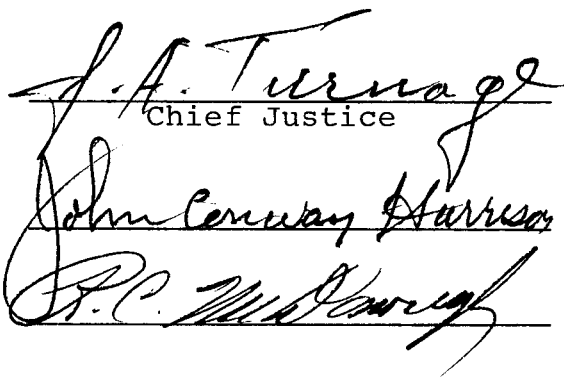 J. A. Turnage
Chief Justice
John Conway Harrison
R. C. McDonough